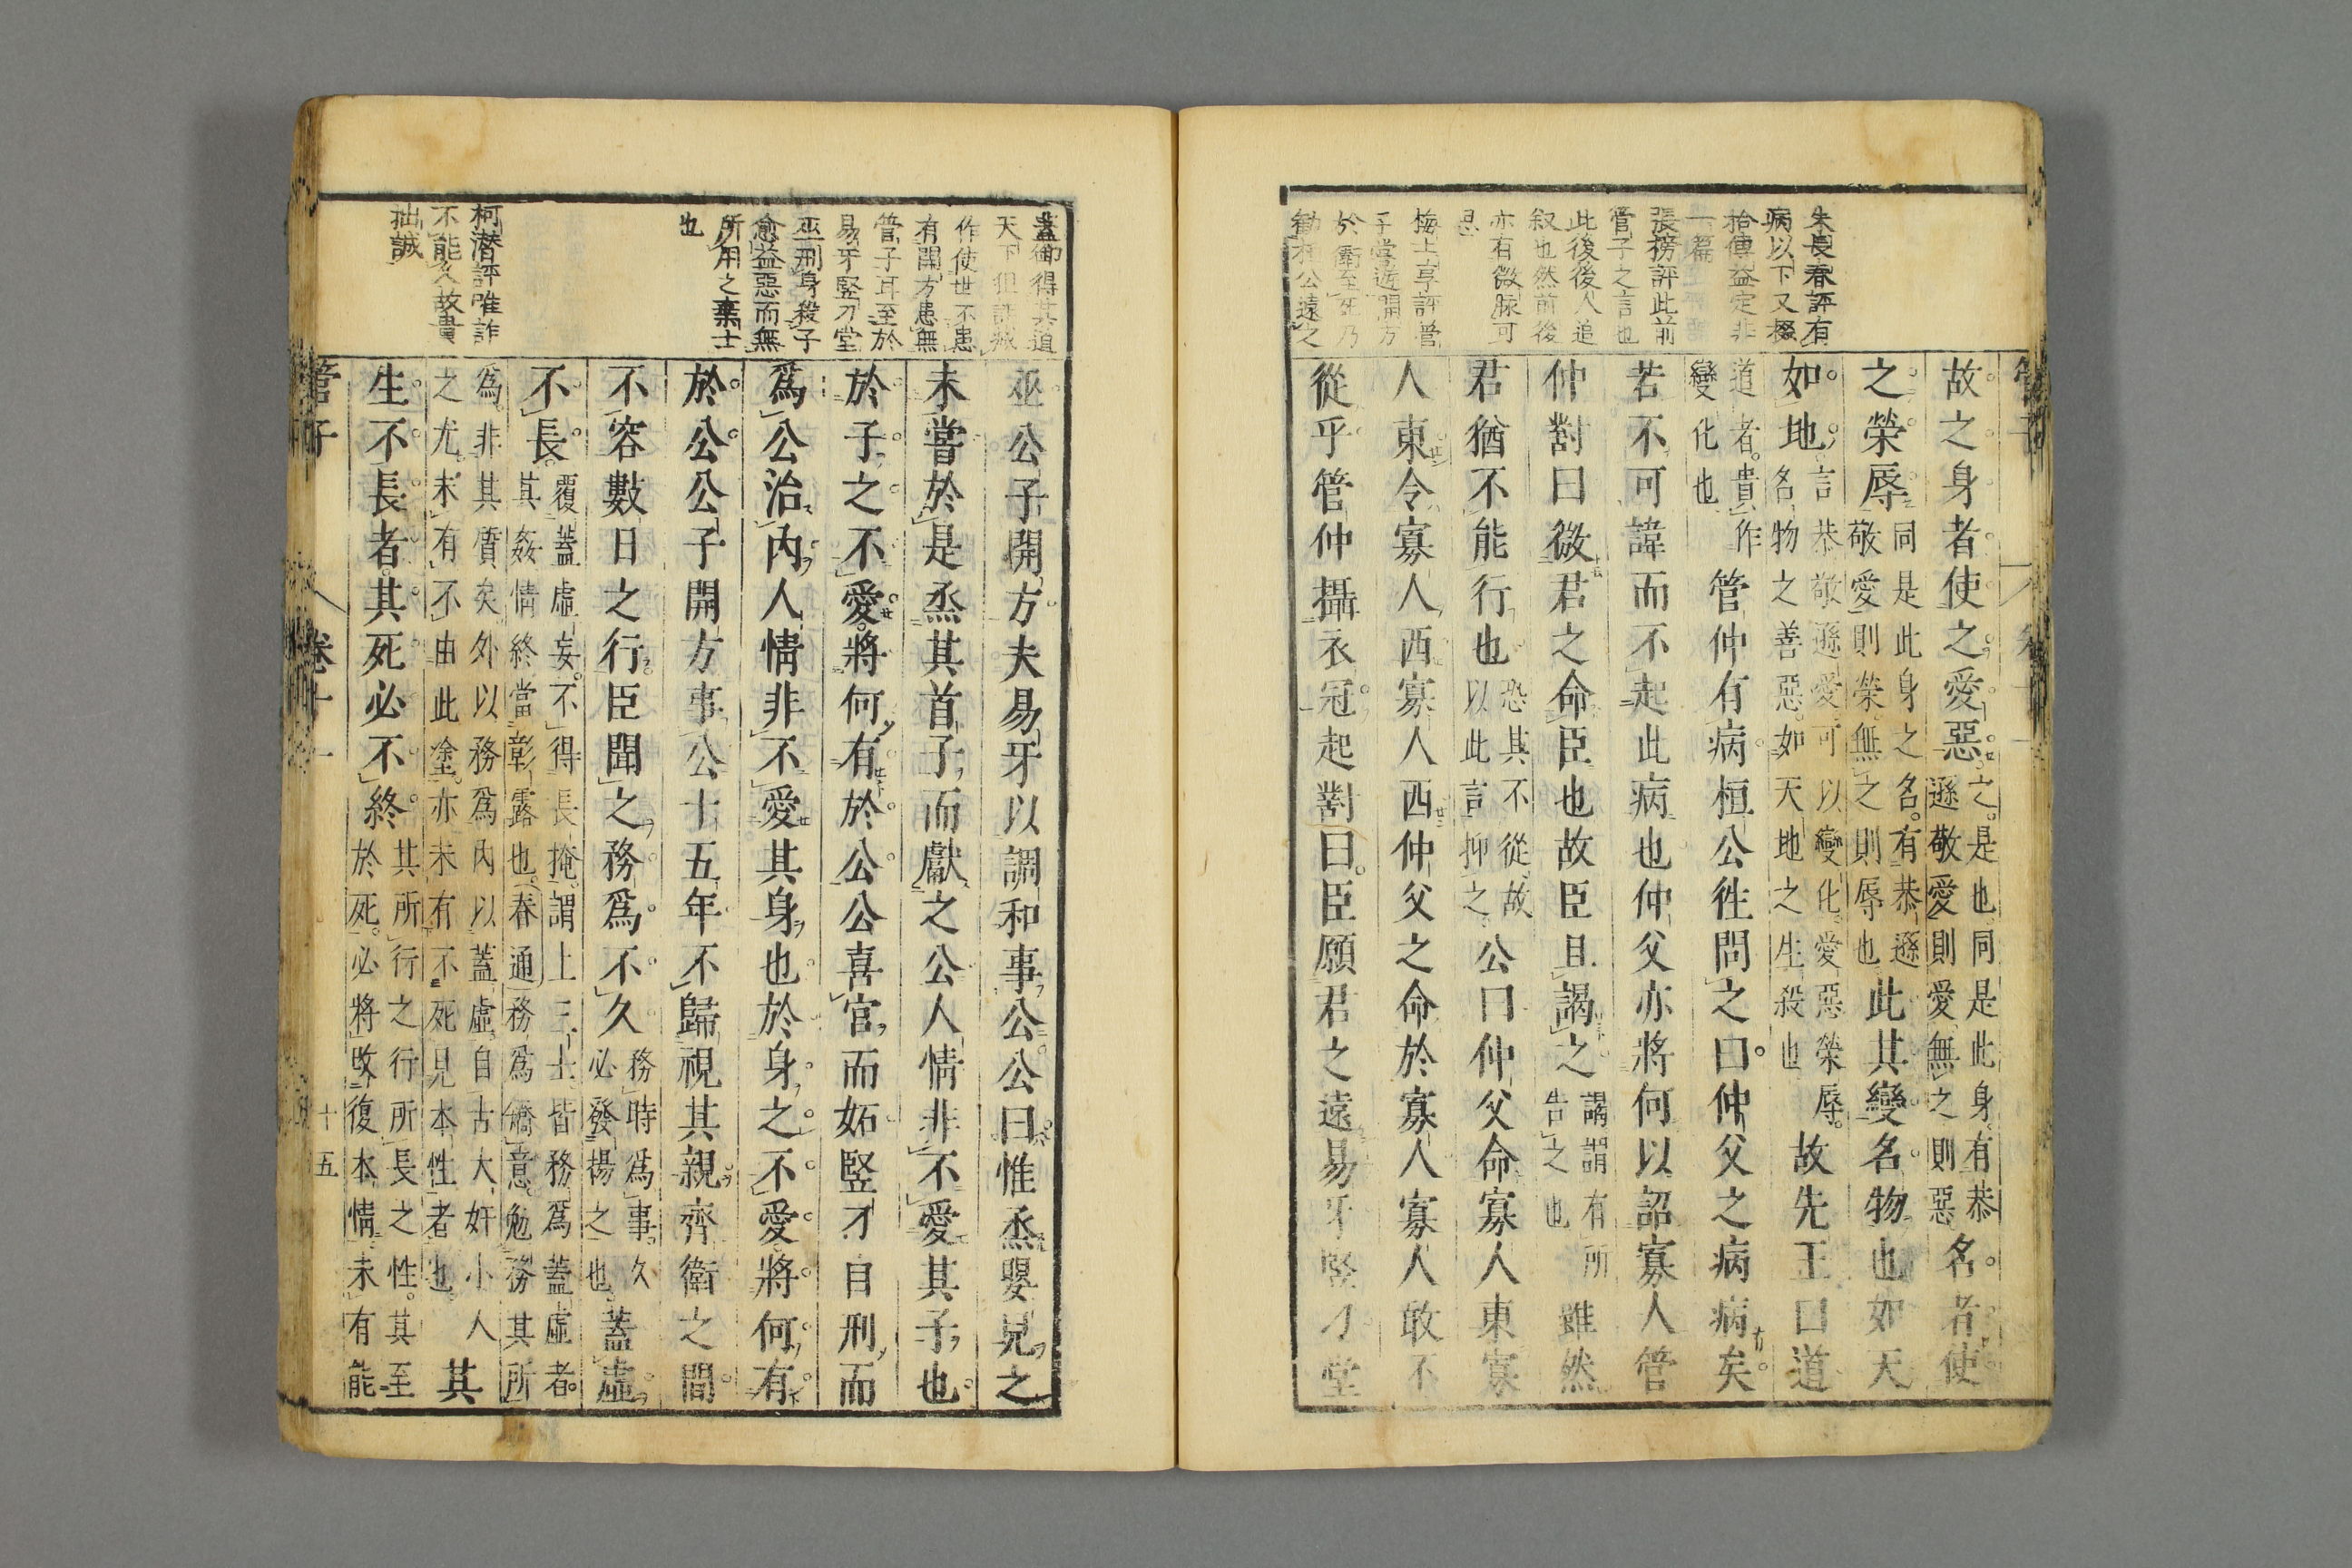 朱長春評有
病以下又掇
拾傅益定非
一篇
張榜評此前
管子之言也
此後後人追
叙也然前後
亦有微脉可
思
梅士享評管
子嘗遊開方
於衞至死乃
勸桓公遠之
故之身者使之愛惡之是也同是此身有恭
遜敬愛則愛無之則惡名者使
之榮辱同是此身之名有恭遜
敬愛則榮無之則辱也此其變名物也如天
如地言恭敬遜愛可以變化愛惡榮辱
名物之善惡如天地之生殺也故先王曰道
道者貴作
變化也管仲有病桓公徃問之曰仲父之病病矣
若不可諱而不起此病也仲父亦將何以詔寡人管
仲對曰微君之命臣也故臣且謁之謁謂有所
告之也雖然
君猶不能行也恐其不從故
以此言抑之公曰仲父命寡人東寡
人東令寡人西寡人西仲父之命於寡人寡人敢不
從乎管仲攝衣冠起對曰臣願君之遠易牙豎刁堂
蓋御得其道
天下狙詐咸
作使世不患
有開方患無
管子耳至於
易牙竪刀堂
巫刑身殺子
愈益惡而無
所用之棄士
也
柯潜評唯詐
不能久故貴
拙誠
巫公子開方夫易牙以調和事公公曰惟烝嬰兒之
未嘗於是烝其首子而獻之公人情非不愛其子也
於子之不愛將何有於公公喜官而妬竪刁自刑而
爲公治內人情非不愛其身也於身之不愛將何有
於公公子開方事公十五年不歸視其親齊衛之間
不容數日之行臣聞之務爲不久務時爲事久
必發揚之也蓋虛
不長覆蓋虛妄不得長掩謂上三士皆務爲蓋虛者
其姦情終當彰露也春通務爲矯意勉務其所
爲非其質矣外以務爲內以蓋虛自古大奸小人
之尤未有不由此塗亦未有不死見本性者也其
生不長者其死必不終其所行之行所長之性其至
於死必將敗復本情未有能
管子
卷十一
十五